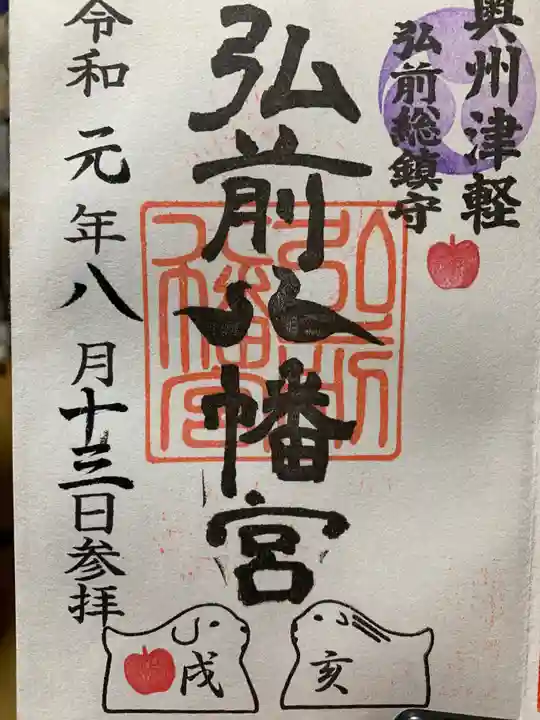 奥州津軽
弘前総鎮守
弘前八幡宮
令和元年八月十三日参拝
戌
亥